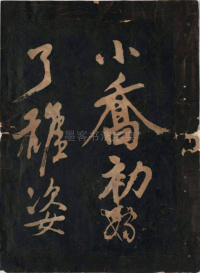 小喬初嫁
了雄姿
墨客书法